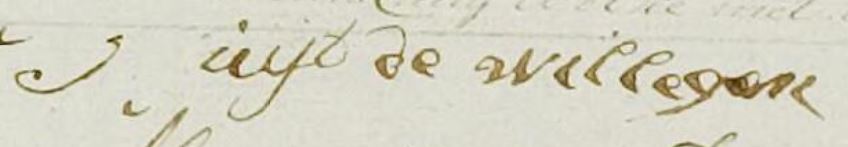 J uijt de Willegen